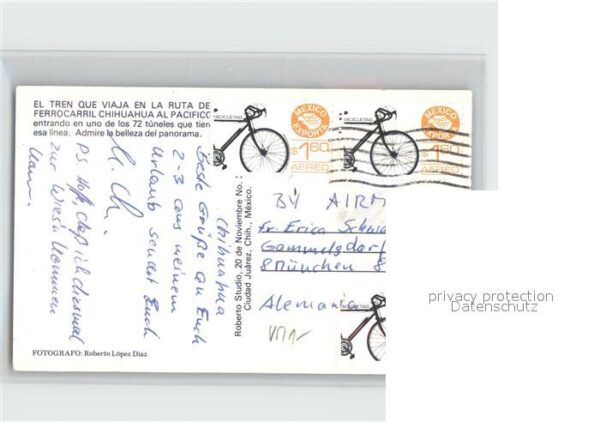 EL TREN QUE VIAJA EN LA RUTA DE
FERROCARRIL CHIHUAHUA AL PACIFICO
entrando en uno de los 72 túneles que tien
esa línea. Admire la belleza del panorama.
Chihuahua
Beste Grüße an Euch
2-3 aus meinem
Urlaub sendet Euch
U. Ch.
PS Hoffe, daß ich diesmal
zur Wies'n kommen
kann.
FOTOGRAFO: Roberto López Díaz
Roberto Studio, 20 de Noviembre No.:
Ciudad Juárez, Chih., México.
BICICLETAS
MEXICO
EXPORTA
$1.60
AEREO
BICICLETAS
MEXICO
EXPORTA
$1.60
AEREO
BY AIRM
Fr. Erica Schwa
Gammelsdorf
8 München 8
Alemania
privacy protection
Datenschutz